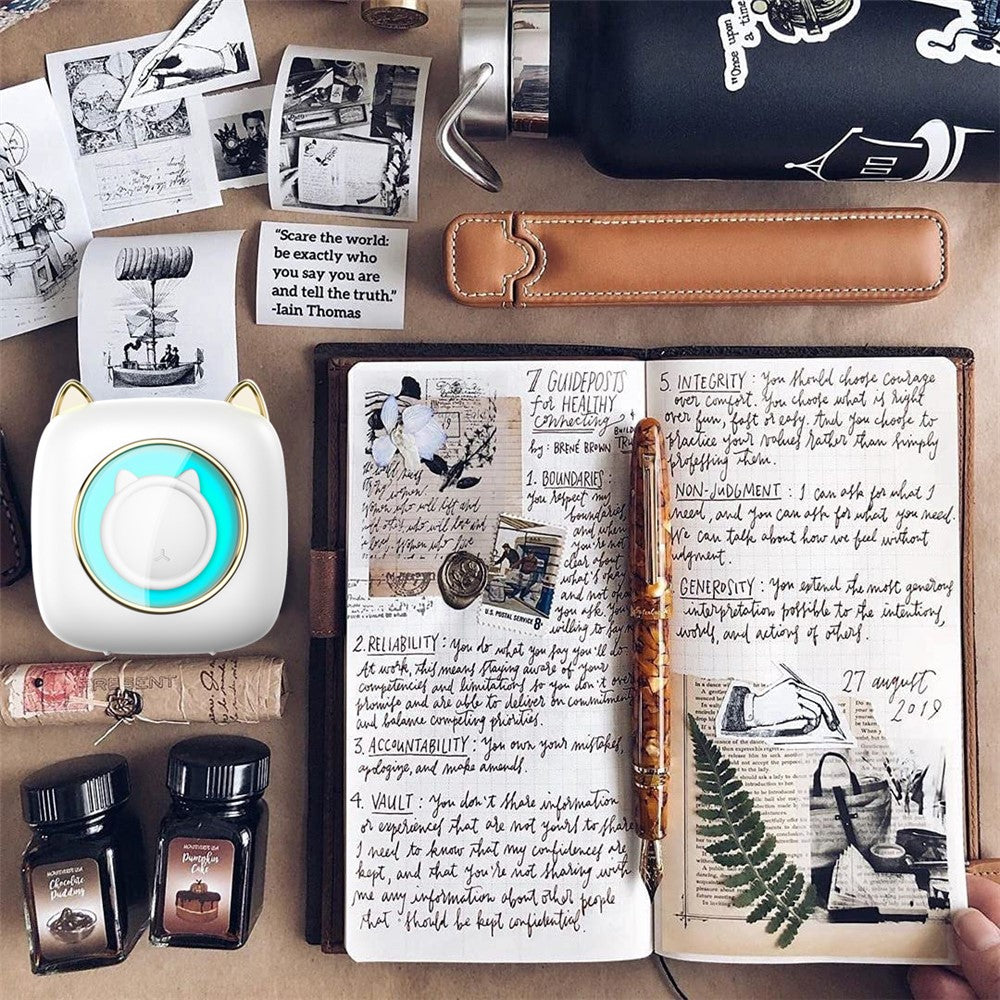 "Once upon
a time
"Scare the world:
be exactly who
you say you are
and tell the truth."
-Iain Thomas
PRESENT
MONTEVERDE USA
Chocolate
Pudding
MONTEVERDE USA
Pumpkin
Cake
7 GUIDEPOSTS
for HEALTHY
connecting
by: BRENÉ BROWN
1. BOUNDARIES:
You respect my
boundaries
and when
you're not
clear about
what's okay
and not okay
you ask. You're
willing to say n
U.S. POSTAL SERVICE 8¢
2. RELIABILITY: You do what you say you'll do.
At work, this means staying aware of your
competencies and limitations so you don't over
promise and are able to deliver on commitments
and balance competing priorities.
3. ACCOUNTABILITY: You own your mistakes,
apologize, and make amends.
4. VAULT: You don't share information
or experiences that are not yours to share
I need to know that my confidences are
kept, and that you're not sharing with
me any information about other people
that should be kept confidential.
5. INTEGRITY: You should choose courage
over comfort. You choose what is right
over fun, fast or easy. And you choose to
practice your values rather than simply
professing them.
NON-JUDGMENT: I can ask for what I
need, and you can ask for what you need.
We can talk about how we feel without
judgment.
GENEROSITY: You extend the most generous
interpretation possible to the intentions,
words, and actions of others.
27 august
2019